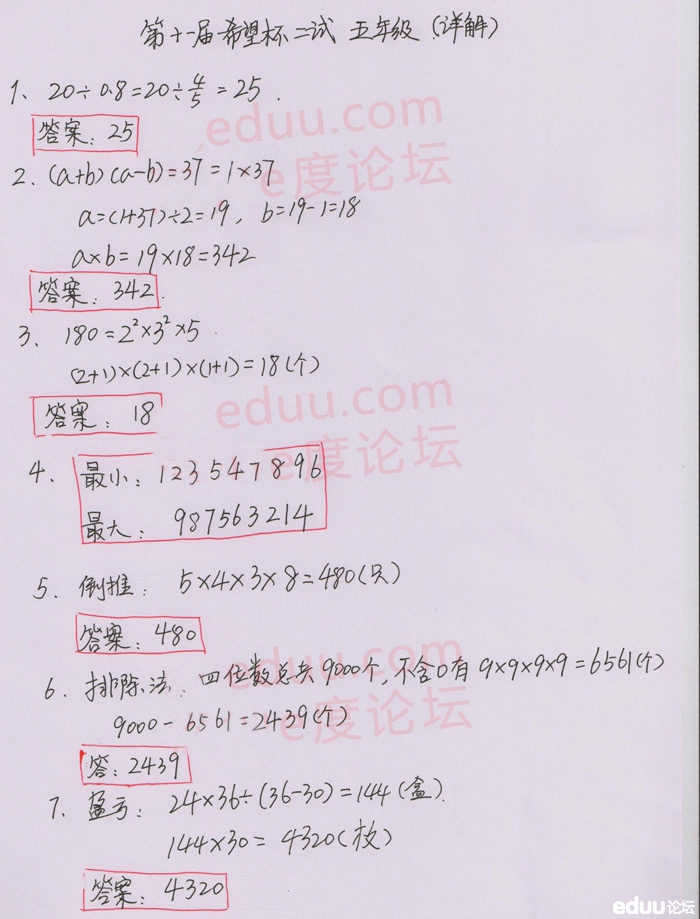 第十一届希望杯二试 五年级 (详解)
1、20÷0.8=20÷4/5=25.
答案：25
2、(a+b)(a-b)=37=1×37
a=(1+37)÷2=19，b=19-1=18
a×b=19×18=342
答案：342.
3、180=2²×3²×5
(2+1)×(2+1)×(1+1)=18(个)
答案：18
4、最小：123547896
最大：987563214
5、倒推：5×4×3×8=480(只)
答案：480
6、排除法：四位数总共9000个，不含0有9×9×9×9=6561(个)
9000-6561=2439(个)
答：2439
7、盈亏：24×36÷(36-30)=144(盒)
144×30=4320(枚)
答案：4320
eduu.com
e度论坛
eduu.com
e度论坛
eduu.com
e度论坛
eduu论坛